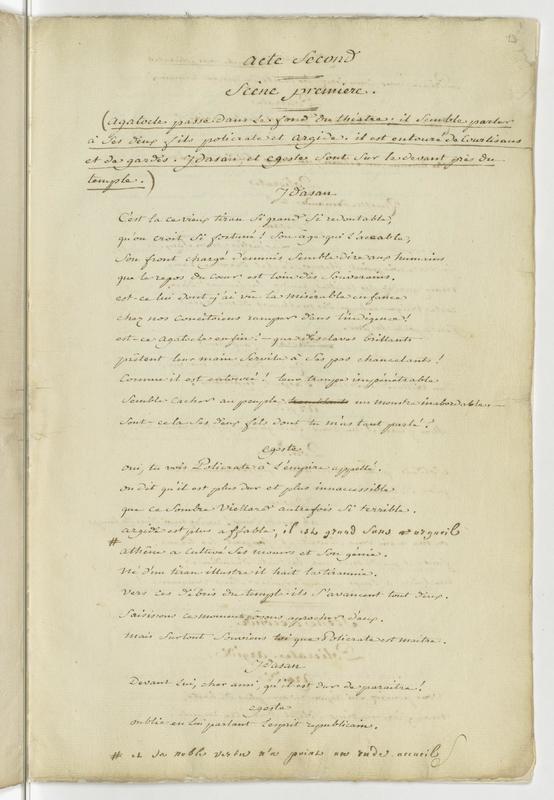 13
acte Second
Scene premiere.
(Agatocle passe dans le fond du théatre; il semble parler
à ses deux fils policrate et Argide. il est entouré de Courtisans
et de gardes. Ydasan et egeste sont sur le devant près du
temple.)
Ydasan
C'est la ce vieux tiran si grand si redoutable,
qu'on croit si fortuné! Son âge qui l'accable,
Son front chargé d'ennuis semble dire aux humains
que le repos du cœur est loin des Souverains.
est-ce lui dont j'ai vu la misérable enfance
chez nos concitoiens ramper dans l'indigence!
est-ce Agatocle enfin! — que d'esclaves brillants
prêtent leur main servile à ses pas chancelants!
Comme il est entouré! leur troupe impénétrable
Semble cacher au peuple un monstre inabordable. —
Sont-ce la ses deux fils dont tu m'as tant parlé?
egeste
oui, tu vois Policrate à l'empire appellé.
on dit qu'il est plus dur et plus innaccessible
que ce sombre Viellard autrefois si terrible.
argide est plus affable, il est grand sans orgueil
#
athène a cultivé ses mœurs et son génie.
Né d'un tiran illustre il hait la tirannie.
Vers ces débris du temple ils s'avancent tout deux.
Saisissons ce moment; osons aprocher d'eux.
mais surtout souviens toi que Policrate est maitre.
Ydasan
Devant lui, cher ami, qu'il est dur de paraitre!
egeste
oublie en lui parlant l'esprit republicain.
# et sa noble vertu n'a point un rude accueil